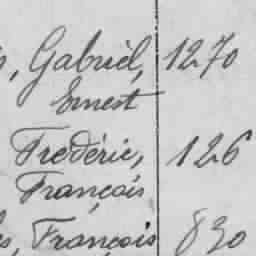 s, Gabriel, 1270
Ernest
Frédéric, 126
François
es, François 830